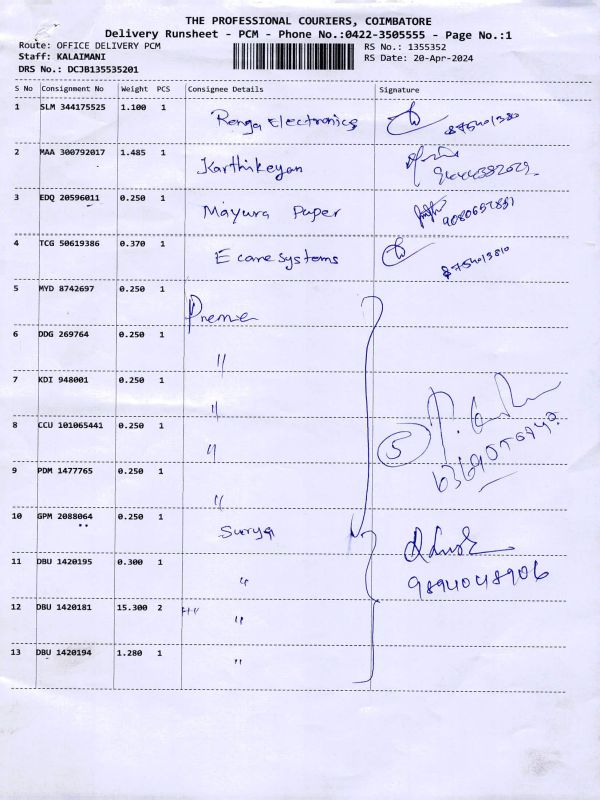 THE PROFESSIONAL COURIERS, COIMBATORE
Delivery Runsheet - PCM - Phone No.:0422-3505555 - Page No.:1
Route: OFFICE DELIVERY PCM RS No.: 1355352
Staff: KALAIMANI RS Date: 20-Apr-2024
DRS No.: DCJB135535201
S No Consignment No Weight PCS Consignee Details Signature
1 SLM 344175525 1.100 1 Renga Electronics
2 MAA 300792017 1.485 1 Karthikeyan
3 EDQ 20596011 0.250 1 Mayura Paper 9080657851
4 TCG 50619386 0.370 1 E care Systems
5 MYD 8742697 0.250 1 Premie
6 DDG 269764 0.250 1 "
7 KDI 948001 0.250 1 "
8 CCU 101065441 0.250 1 " 5
9 PDM 1477765 0.250 1 "
10 GPM 2088064 0.250 1 Surya
11 DBU 1420195 0.300 1 " 9894048906
12 DBU 1420181 15.300 2 "
13 DBU 1420194 1.280 1 "